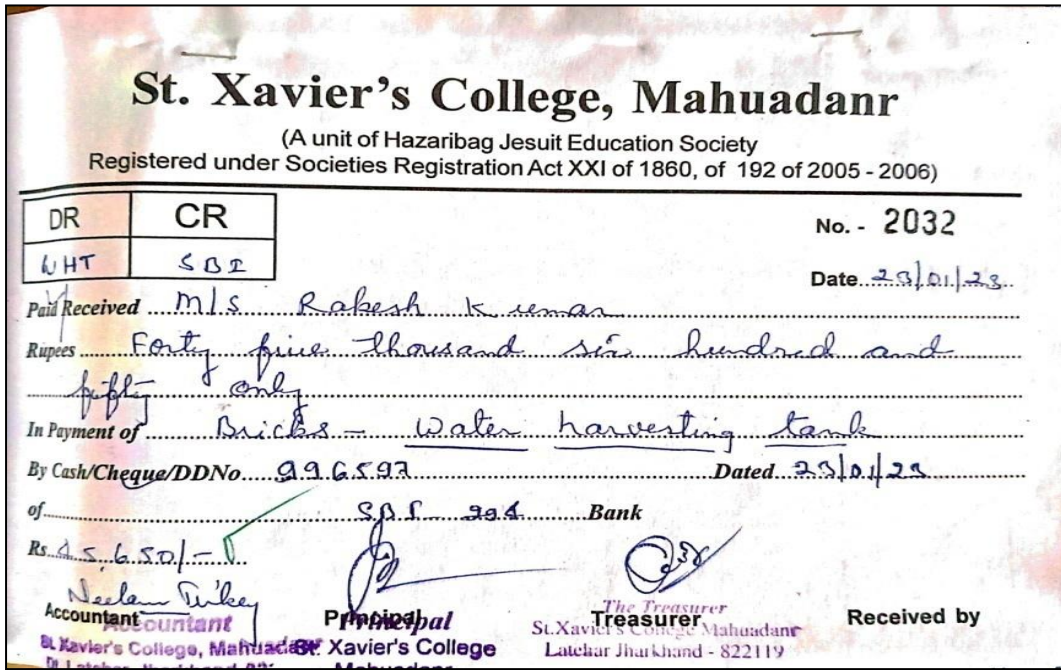 St. Xavier's College, Mahuadanr
(A unit of Hazaribag Jesuit Education Society
Registered under Societies Registration Act XXI of 1860, of 192 of 2005 - 2006)
DR CR
WHT SBI
No. - 2032
Date 23/01/23
Paid Received M/s Rakesh Kumar
Rupees Forty five thousand six hundred and
fifty only
In Payment of Bricks - Water harvesting tank
By Cash/Cheque/DDNo. 996597 Dated 23/01/23
of SBI Bank
Rs. 45,650/-
Neelam Tirkey
Accountant Principal Treasurer Received by
Accountant Principal The Treasurer
St. Xavier's College, Mahuadanr St. Xavier's College St.Xavier's College Mahuadanr
Latehar Jharkhand - 822119